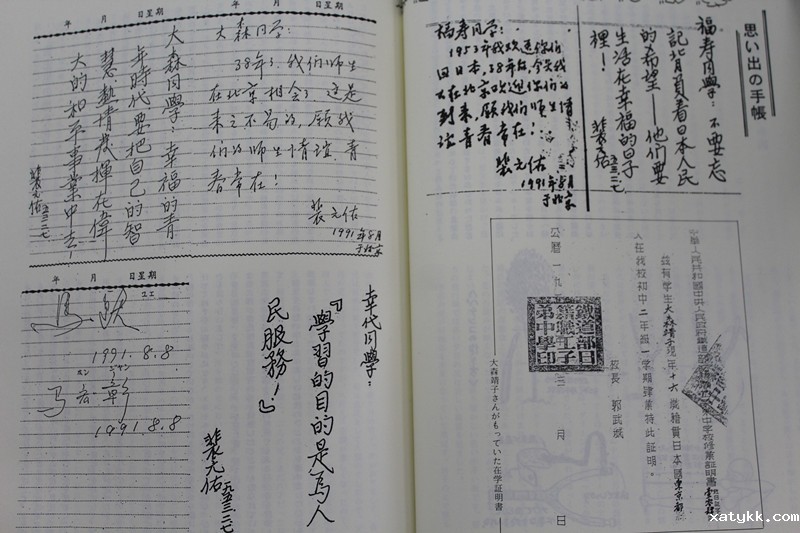 思い出の手帳
福寿同學:不要忘
記背負着日本人民
的希望——他們要
生活在幸福的日子
裡!
裴元佑
五三.二.七
福寿同学:
1953年我欢送你们
回日本,38年后,今天我
又在北京欢迎你们的
到来,愿我们师生情
谊青春常在!
裴元佑
1991年8月
于北京
茲有学生大森靖子現年十六歲籍貫日本國東京都
入在我校初中二年級一学期肄業特此証明。
校長 郭武
公曆一九 月 日
鐵道部日
籍職工子
弟中學印
大森靖子さんがもっていた在学証明書
年 月 日星期
大森同學:幸福的青
年時代要把自己的智
慧、熱情發揮在偉
大的和平事業中去!
裴元佑
五三.二.七
年 月 日星期
大森同学:
38年了,我们师生
在北京相会了,这是
来之不易的,愿我
们的师生情谊,青
春常在!
裴元佑
1991年8月
于北京
年 月 日星期
1991.8.8
马 彰
1991.8.8
幸代同學:
『學習的目的是爲人
民服務!』
裴元佑
五三.二.七
xatykk.com